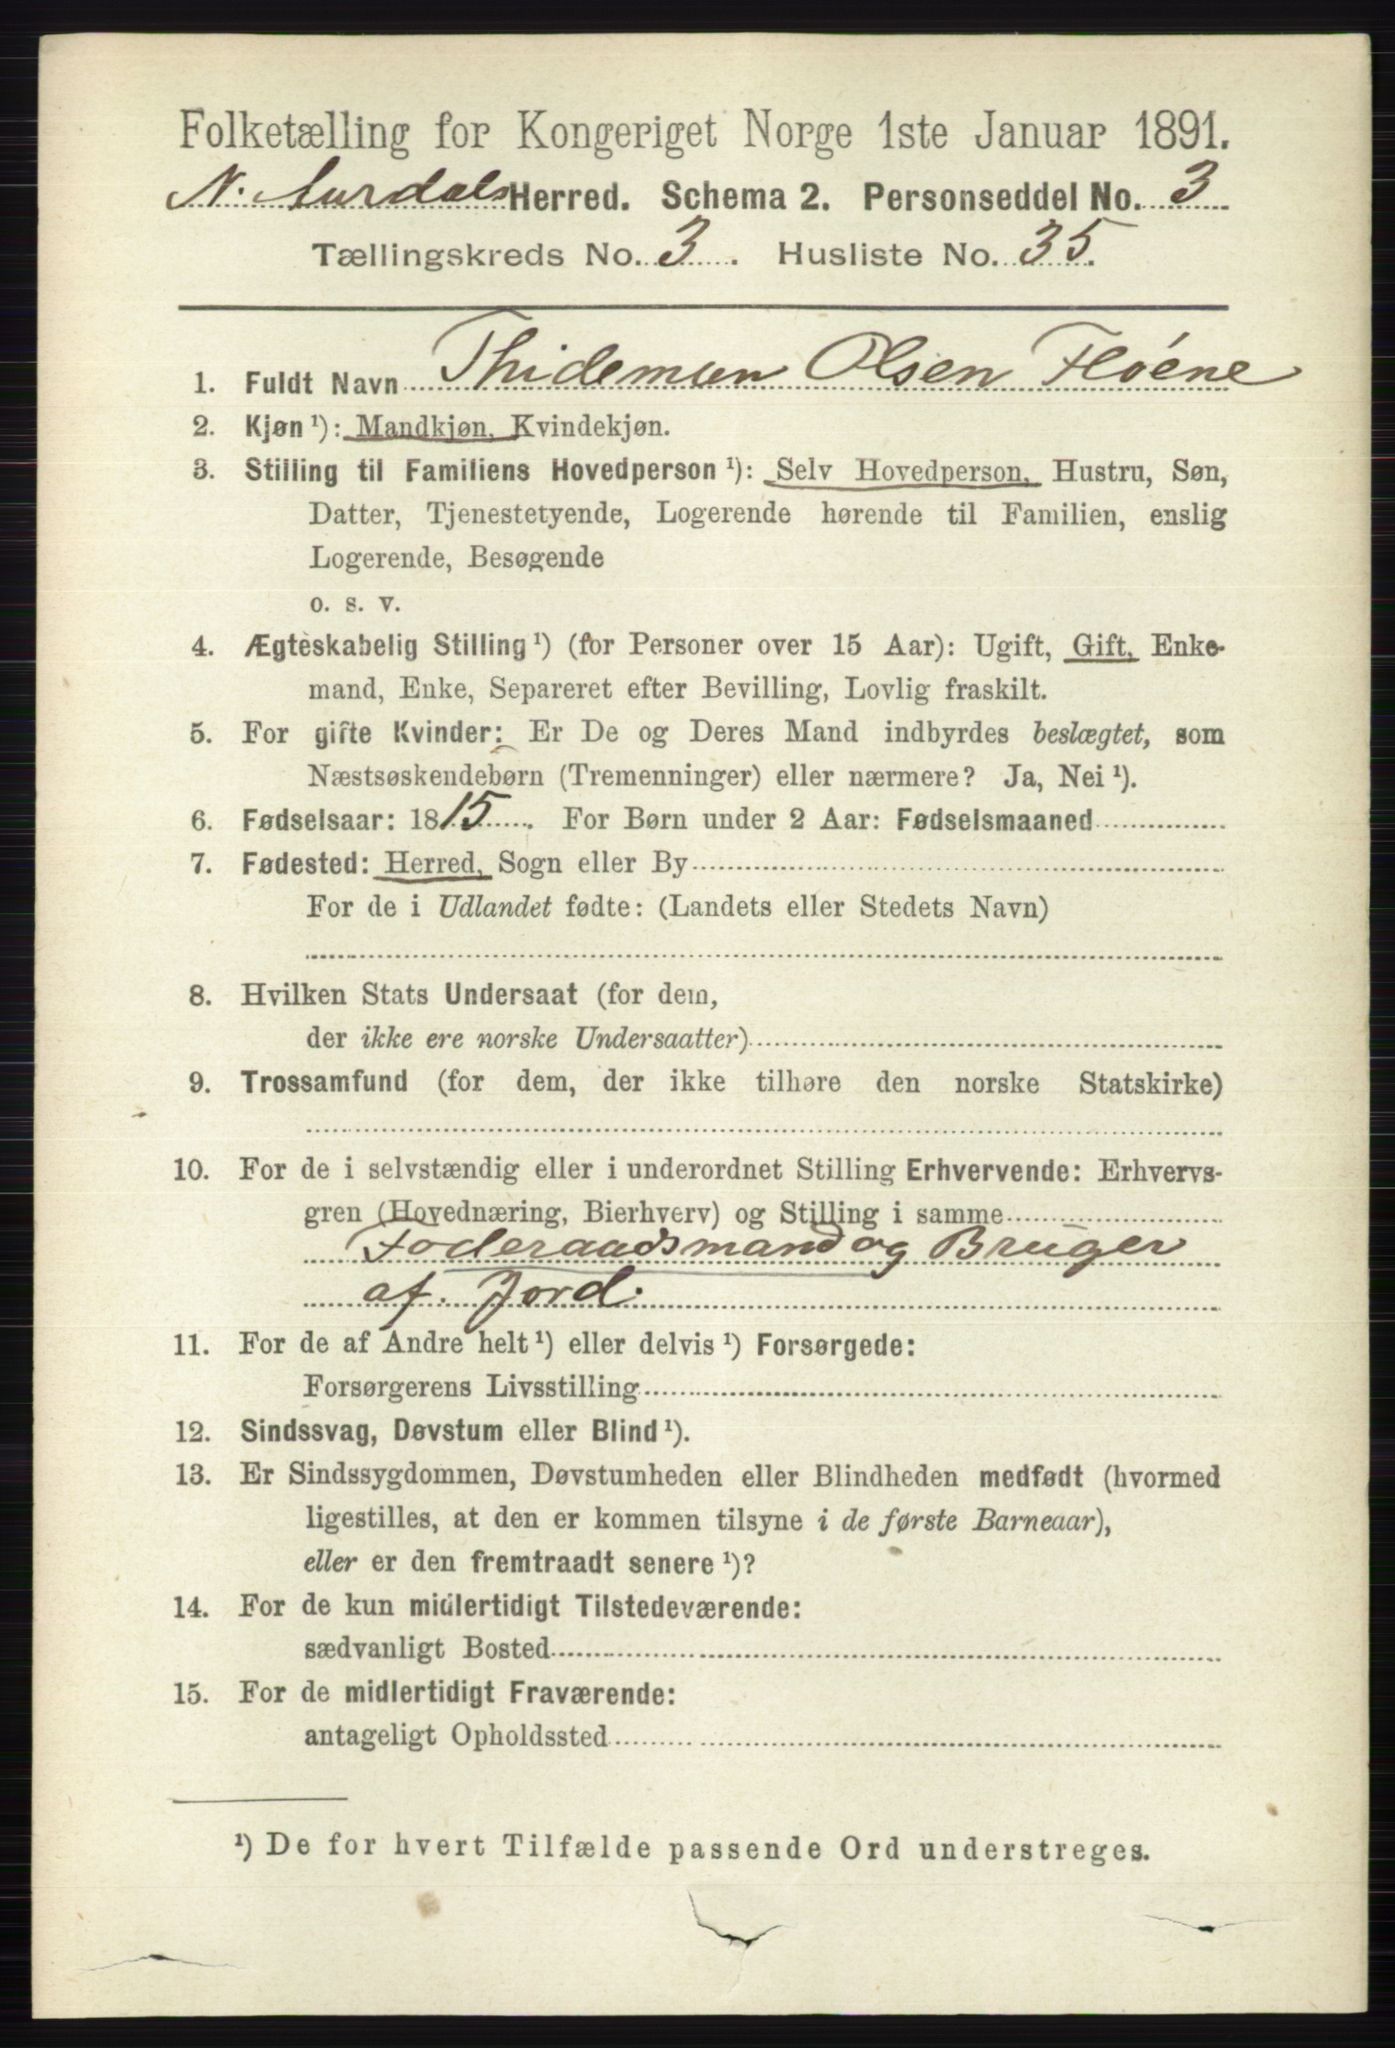 Folketælling for Kongeriget Norge 1ste Januar 1891.
N. Aurdals Herred. Schema 2. Personseddel No. 3
Tællingskreds No. 3. Husliste No. 35.
1. Fuldt Navn Thideman Olsen Fløene
2. Kjøn ¹): Mandkjøn, Kvindekjøn.
3. Stilling til Familiens Hovedperson ¹): Selv Hovedperson, Hustru, Søn,
Datter, Tjenestetyende, Logerende hørende til Familien, enslig
Logerende, Besøgende
o. s. v.
4. Ægteskabelig Stilling ¹) (for Personer over 15 Aar): Ugift, Gift, Enke-
mand, Enke, Separeret efter Bevilling, Lovlig fraskilt.
5. For gifte Kvinder: Er De og Deres Mand indbyrdes beslægtet, som
Næstsøskendebørn (Tremenninger) eller nærmere? Ja, Nei ¹).
6. Fødselsaar: 1815. For Børn under 2 Aar: Fødselsmaaned
7. Fødested: Herred, Sogn eller By
For de i Udlandet fødte: (Landets eller Stedets Navn)
8. Hvilken Stats Undersaat (for dem,
der ikke ere norske Undersaatter)
9. Trossamfund (for dem, der ikke tilhøre den norske Statskirke)
10. For de i selvstændig eller i underordnet Stilling Erhvervende: Erhvervs-
gren (Hovednæring, Bierhverv) og Stilling i samme
Foderaadsmand og Bruger
af Jord.
11. For de af Andre helt ¹) eller delvis ¹) Forsørgede:
Forsørgerens Livsstilling
12. Sindssvag, Døvstum eller Blind ¹).
13. Er Sindssygdommen, Døvstumheden eller Blindheden medfødt (hvormed
ligestilles, at den er kommen tilsyne i de første Barneaar),
eller er den fremtraadt senere ¹)?
14. For de kun midlertidigt Tilstedeværende:
sædvanligt Bosted
15. For de midlertidigt Fraværende:
antageligt Opholdssted
¹) De for hvert Tilfælde passende Ord understreges.